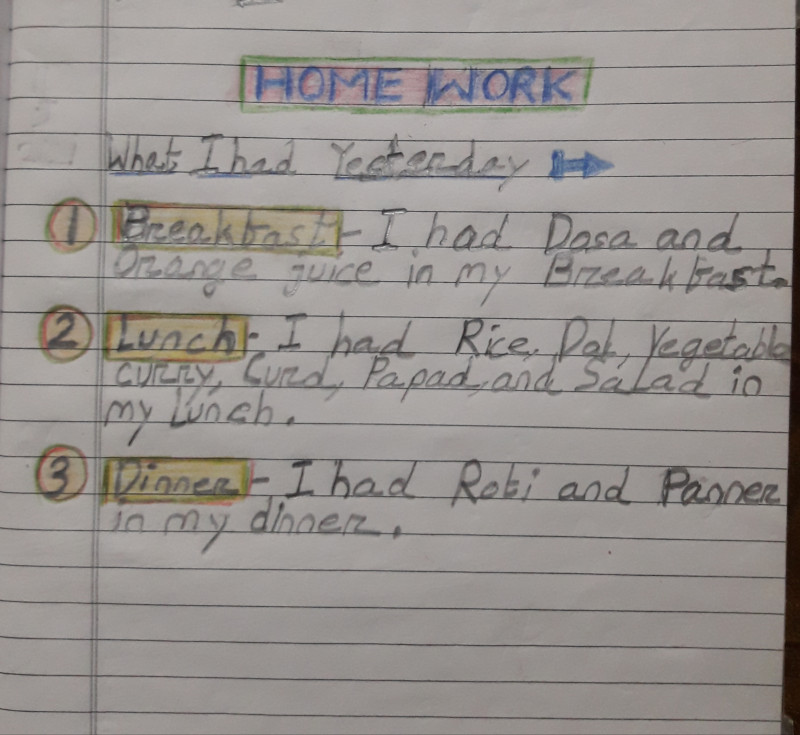 HOME WORK
What I had Yesterday
1 Breakfast - I had Dosa and
Orange juice in my Breakfast.
2 Lunch - I had Rice, Dal, Vegetable
curry, Curd, Papad, and Salad in
my Lunch.
3 Dinner - I had Roti and Panner
in my dinner.